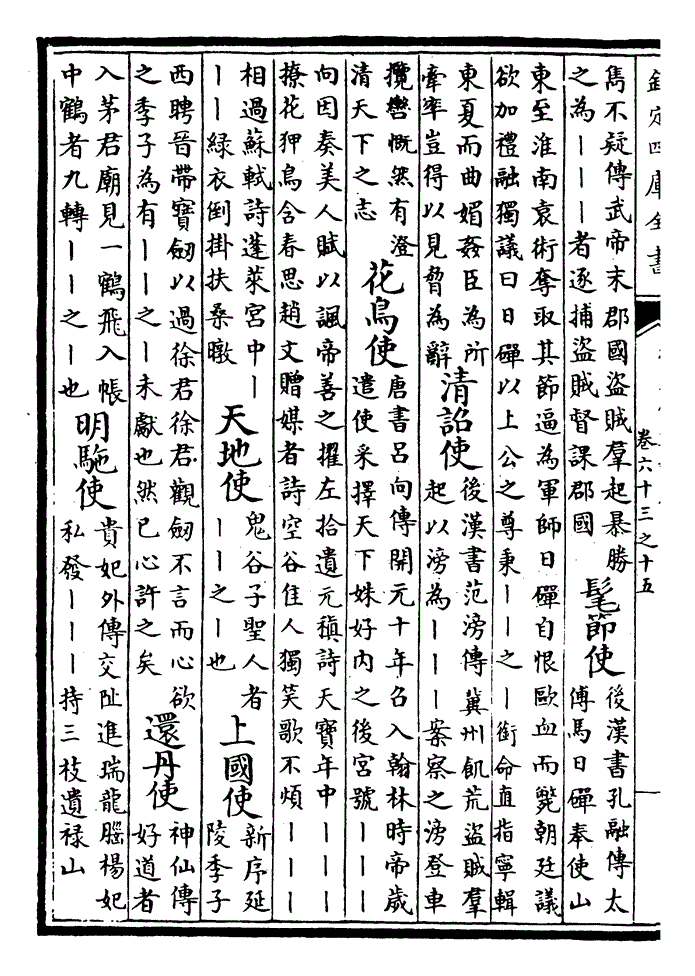 欽定四庫全書
卷六十三之十五
雋不疑傳武帝末郡國盜賊羣起暴勝
之為丨丨丨者逐捕盜賊督課郡國
髦節使
後漢書孔融傳太
傅馬日磾奉使山
東至淮南袁術奪取其節逼為軍師日磾自恨歐血而斃朝廷議
欲加禮融獨議曰日磾以上公之尊秉丨丨之丨銜命直指寧輯
東夏而曲媚姦臣為所
牽率豈得以見脅為辭
清詔使
後漢書范滂傳冀州飢荒盜賊羣
起以滂為丨丨丨案察之滂登車
攬轡慨然有澄
清天下之志
花鳥使
唐書呂向傳開元十年召入翰林時帝歲
遣使采擇天下姝好内之後宮號丨丨丨
向因奏美人賦以諷帝善之擢左拾遺元稹詩天寶年中丨丨丨
撩花狎鳥含春思趙文贈媒者詩空谷佳人獨笑歌不煩丨丨丨
相過蘇軾詩蓬萊宮中丨
丨丨綠衣倒掛扶桑暾
天地使
鬼谷子聖人者
丨丨之丨也
上國使
新序延
陵季子
西聘晉帶寶劔以過徐君徐君觀劔不言而心欲
之季子為有丨丨之丨未獻也然已心許之矣
還丹使
神仙傳
好道者
入茅君廟見一鶴飛入帳
中鶴者九轉丨丨之丨也
明駞使
貴妃外傳交阯進瑞龍腦楊妃
私發丨丨丨持三枝遺祿山